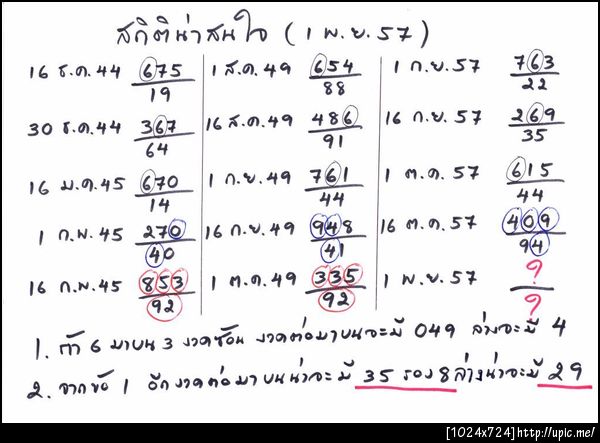 สถิติน่าสนใจ (1 พ.ย. 57)
16 ธ.ค. 44 675 1 ส.ค. 49 654 1 ก.ย. 57 763
19 88 22
30 ธ.ค. 44 367 16 ส.ค. 49 486 16 ก.ย. 57 269
64 91 35
16 ม.ค. 45 670 1 ก.ย. 49 761 1 ต.ค. 57 615
14 44 44
1 ก.พ. 45 270 16 ก.ย. 49 948 16 ต.ค. 57 409
40 41 94
16 ก.พ. 45 853 1 ต.ค. 49 335 1 พ.ย. 57 ?
92 92 ?
1. ถ้า 6 มาบน 3 งวดซ้อน งวดต่อมาบนจะมี 049 ล่างจะมี 4
2. จากข้อ 1 อีกงวดต่อมาบนน่าจะมี 35 รอง 8 ล่างน่าจะมี 29
[1024x724]http://upic.me/